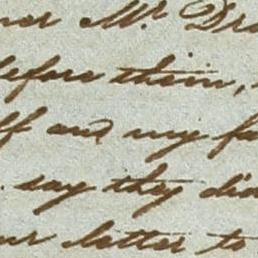 Mr Dra
before them,
and my fa
say they did
letter to